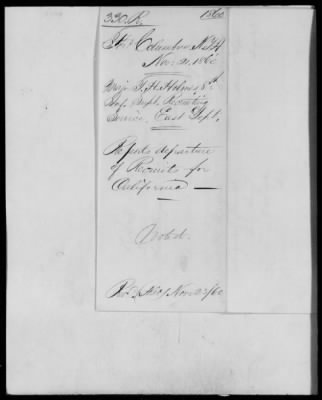 330 R. 1860
Ft. Columbus N.Y.H.
Nov. 21. 1860
Major T. H. Holmes 8th
Inf. Supt. Recruiting
Service, East Dept.
Reports departure
of Recruits for
California —
Noted.
Nov 23/60